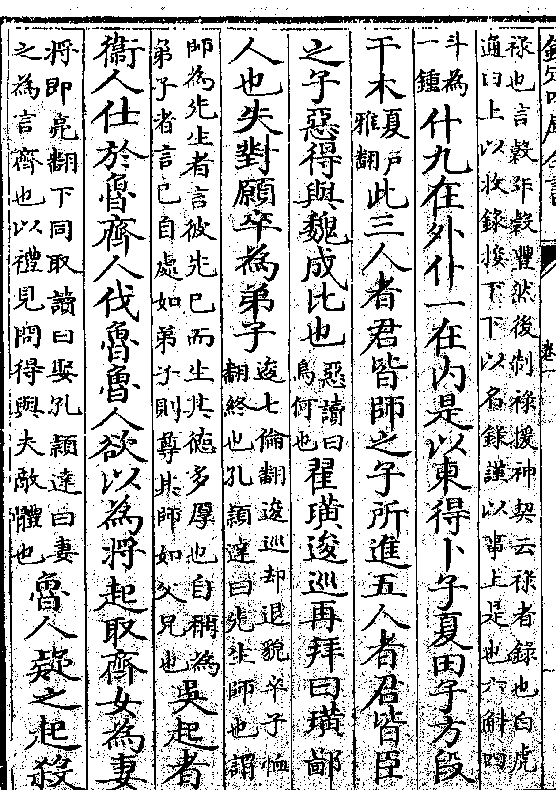 祿也言穀年穀豐然後制祿援神契云祿者錄也白虎
通曰上以收錄接下下以名錄謹以事上是也六斛四
斗為
一鍾
什九在外什一在內是以東得卜子夏田子方段
干木
夏戶
雅翻
此三人者君皆師之子所進五人者君皆臣
之子惡得與魏成比也
惡讀曰
烏何也
翟璜逡巡再拜曰璜鄙
人也失對願卒為弟子
逡七倫翻逡巡却退貌卒子恤
翻終也孔穎達曰先生師也謂
師為先生者言彼先已而生其德多厚也自稱為
弟子者言已自處如弟子則尊其師如父兄也
吳起者
衞人仕於魯齊人伐魯魯人欲以為將起取齊女為妻
將即亮翻下同取讀曰娶孔穎達曰妻
之為言齊也以禮見問得與夫敵體也
魯人疑之起殺
卷一